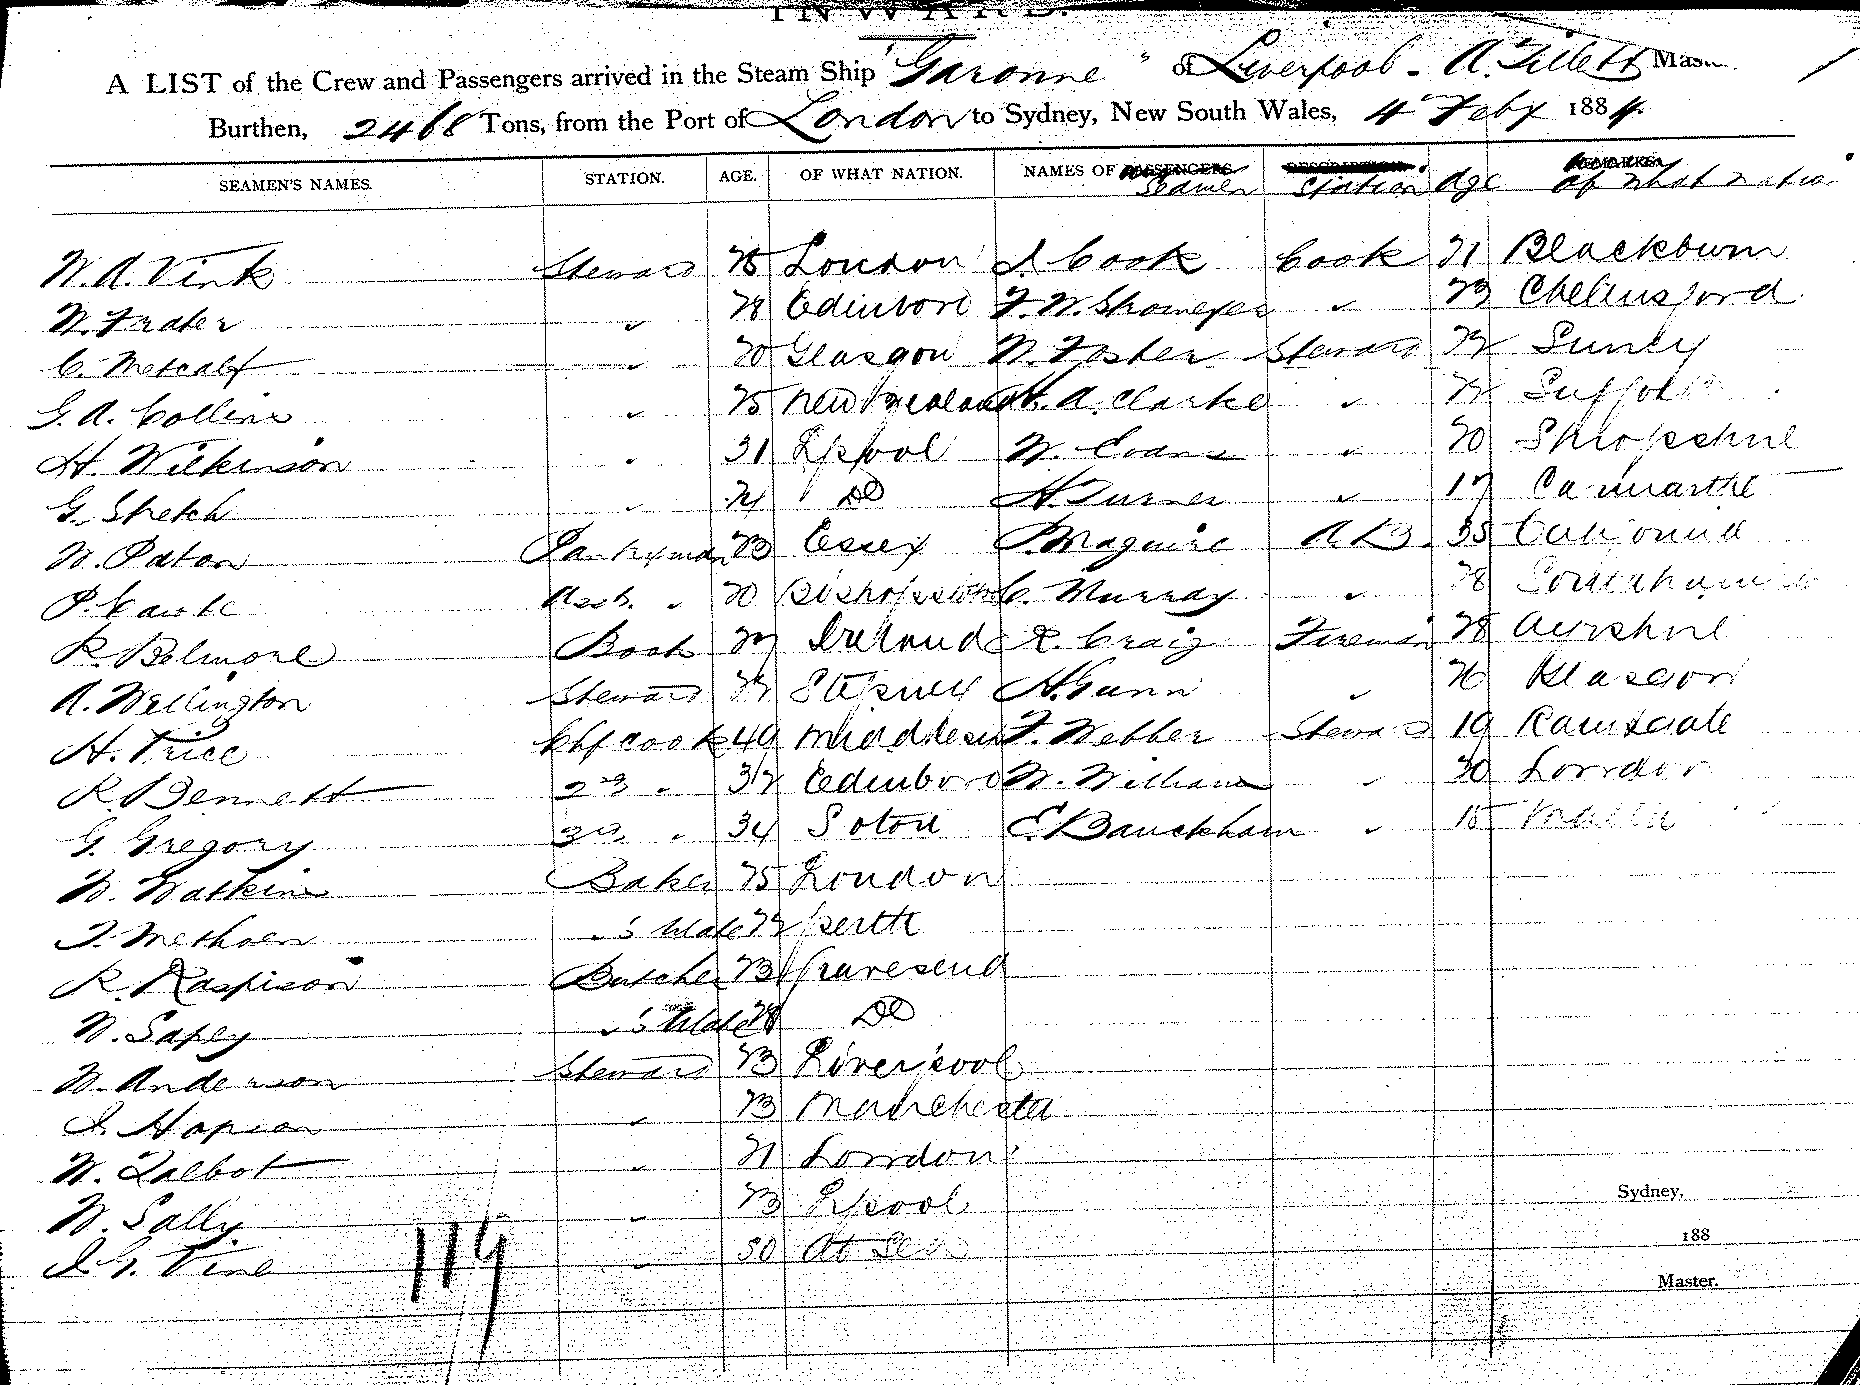 INWARD.
A LIST of the Crew and Passengers arrived in the Steam Ship "Garonne" of Liverpool - A. Tillett Mas
Burthen, 2468 Tons, from the Port of London to Sydney, New South Wales, 4 Feby 1884.
SEAMEN'S NAMES. STATION. AGE. OF WHAT NATION. NAMES OF Seamen Station Age Of What Natio
W. A. Vink Steward 28 London J. Cook Cook 21 Blackburn
W. Frater " 28 Edinboro F. W. " 23 Chelmsford
C. Metcalf " 20 Glasgow W. Foster Steward 22 Surrey
G. A. Collins " 25 New Zealand A. Clarke " 22 Suffolk
H. Wilkinson " 31 L'pool W. Evans " 20 Shropshire
G. Stretch " 24 Do H. Turner " 17
W. Paton Pantryman 23 Essex P. Maguire A.B. 35 California
P. Asst. " 20 C. Murray " 28
R. Belmore Boots 27 Ireland R. Craig Fireman 28 Ayrshire
A. Wellington Steward 22 Stepney H. Gunn " 26 Glasgow
H. Price Chf cook 40 Middlesex F. Webber Steward 19 Ramsgate
R. Bennett 2nd " 32 Edinboro W. Williams " 30 London
G. Gregory 3rd " 34 Soton E. Bauckham " 18 Malta
W. Watkins Baker 25 London
T. Methven "'s Mate 22 Perth
R. Raspison Butcher 23 Gravesend
W. Sapey "'s Mate 28 Do
W. Anderson Steward 23 Liverpool
J. Hopson " 23 Manchester
W. Talbot " 21 London
W. Sally " 23 L'pool
J. G. Vine " 50 At Sea
119
Sydney,
188
Master.